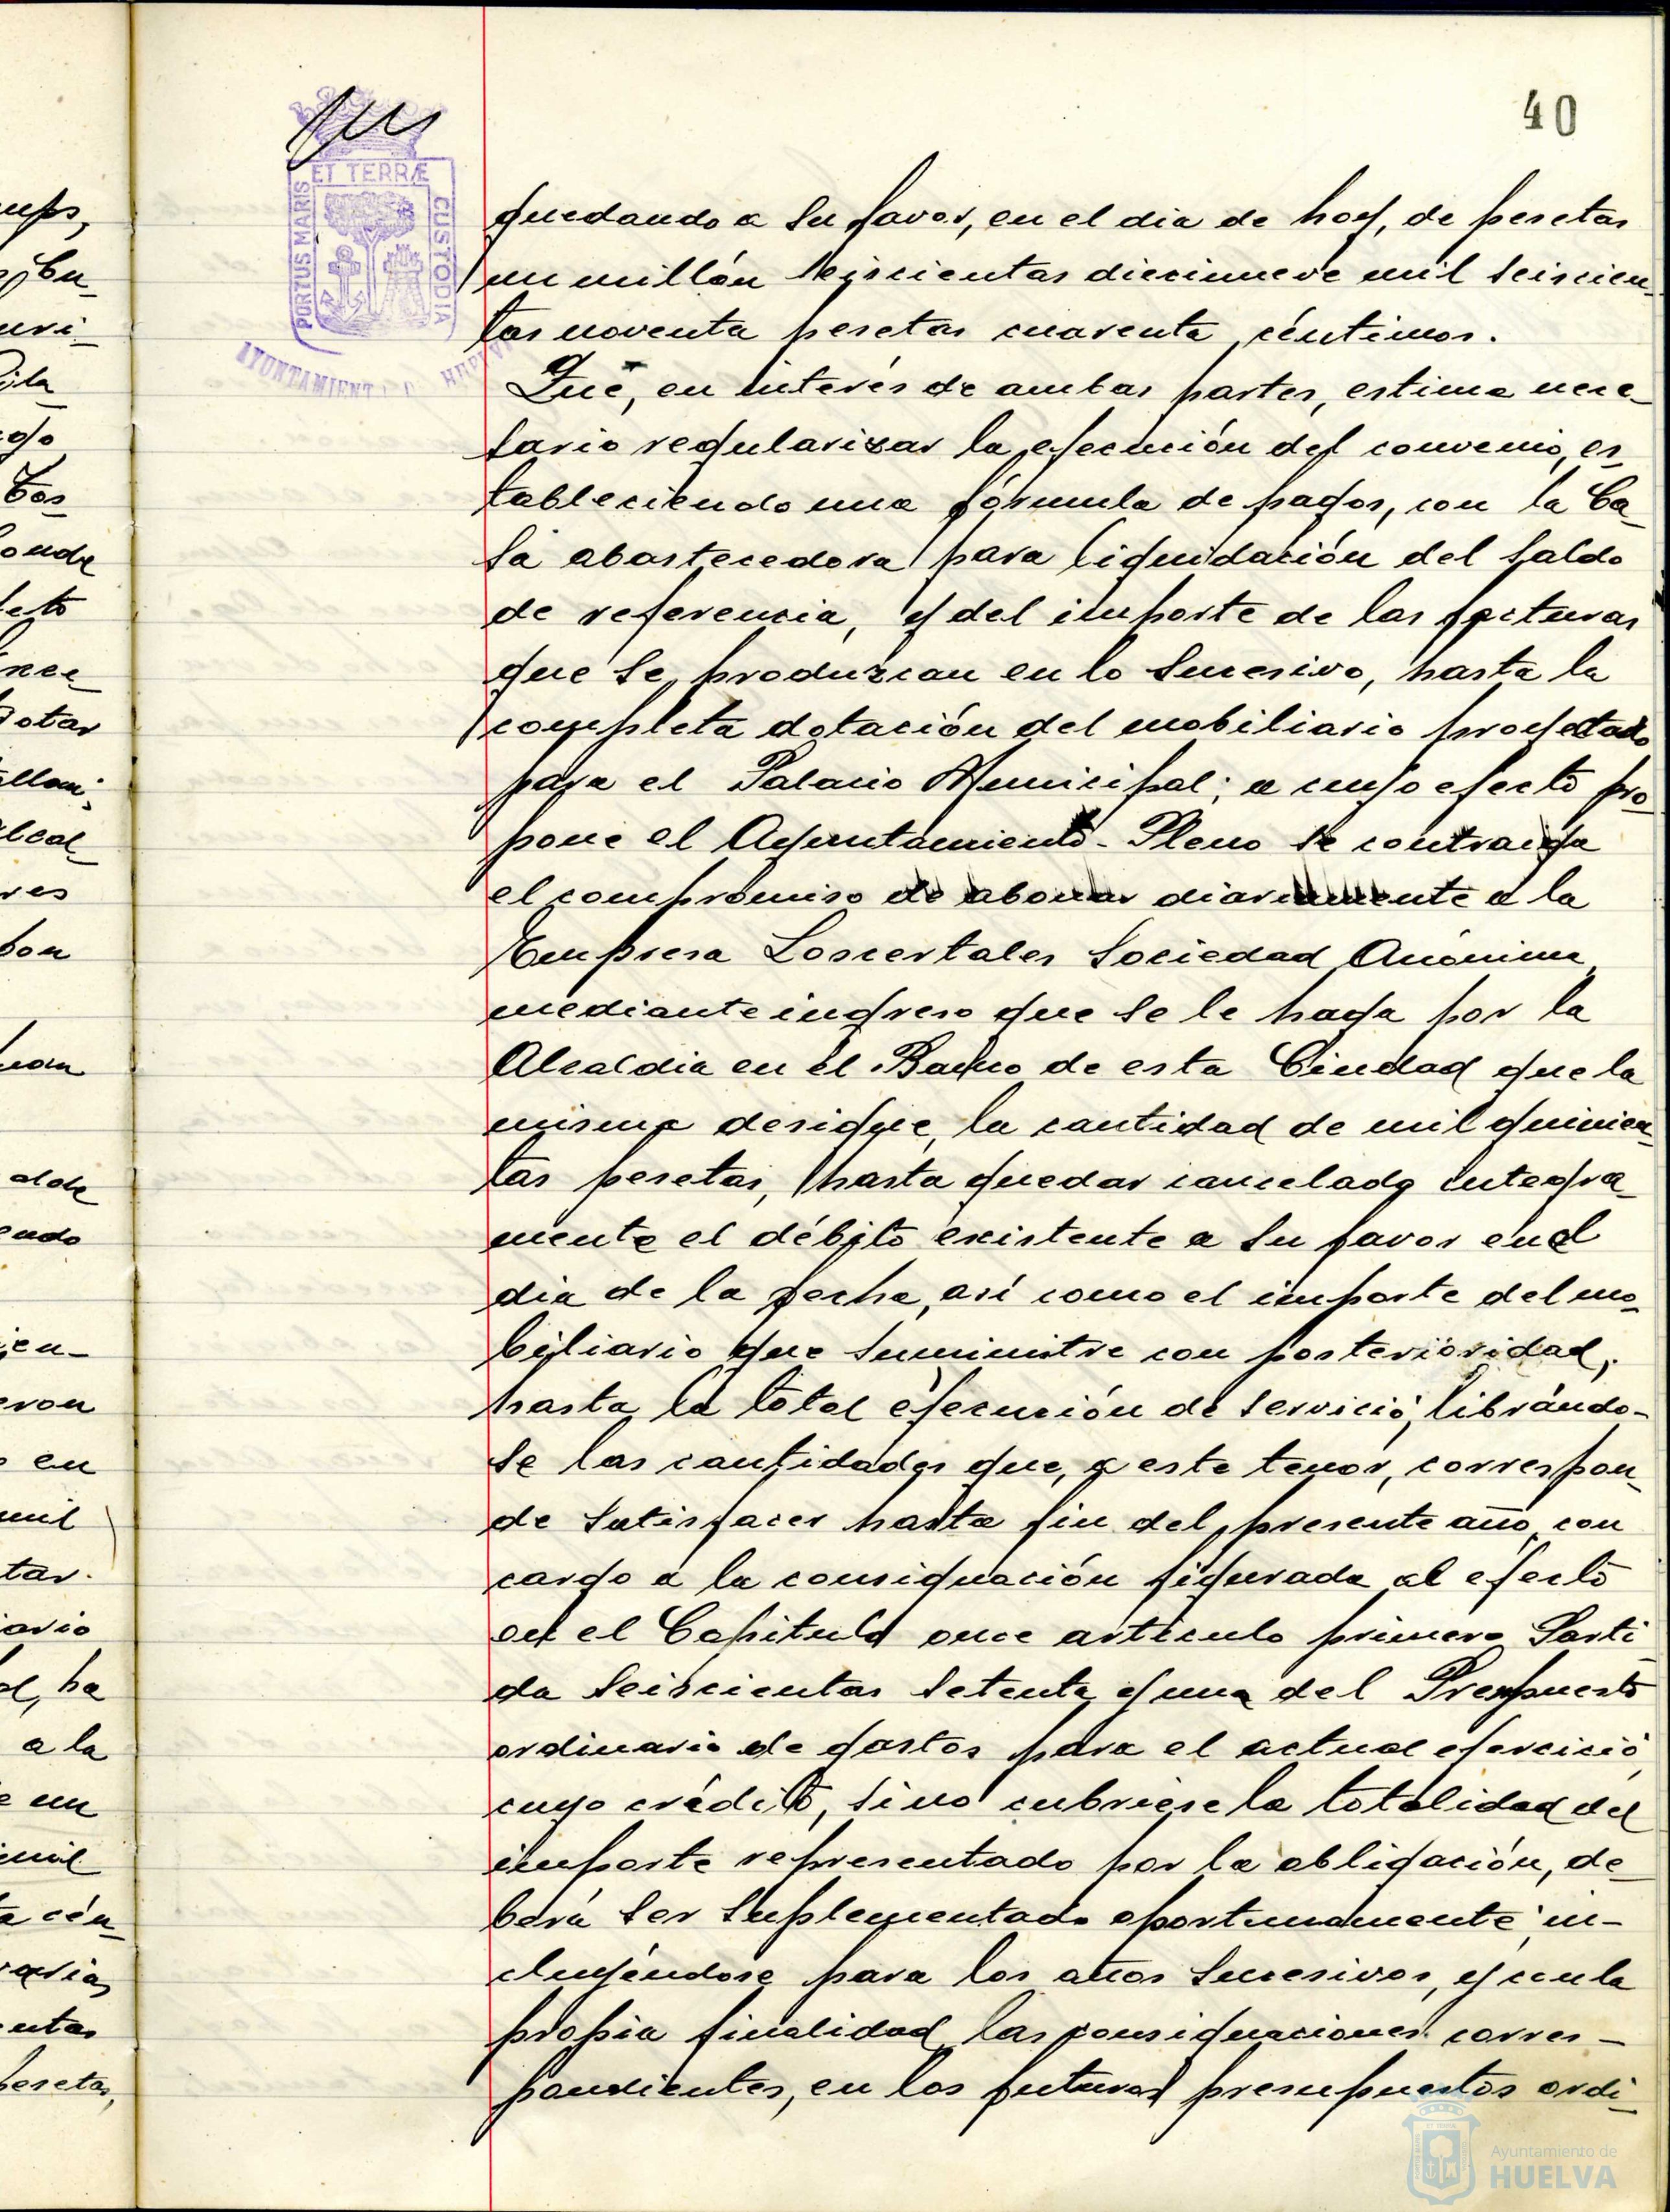 40
ET TERRÆ
PORTUS MARIS
CUSTODIA
AYUNTAMIENTO
quedando a su favor, en el dia de hoy, de pesetas
un millón seiscientas diecinueve mil seiscien-
tas noventa pesetas cuarenta céntimos.
Que, en interés de ambas partes, estima nece-
sario regularizar la ejecución del convenio, es-
tableciendo una fórmula de pagos, con la Ca-
sa abastecedora para liquidación del saldo
de referencia, y del importe de las facturas
que se produzcan en lo sucesivo, hasta la
completa dotación del mobiliario proyectado
para el Palacio Municipal; a cuyo efecto pro-
pone el Ayuntamiento-Pleno se contraiga
el compromiso de abonar diariamente a la
Empresa Loscertales Sociedad Anónima,
mediante ingreso que se le haga por la
Alcaldia en el Banco de esta Ciudad que la
misma designe, la cantidad de mil quinien-
tas pesetas, hasta quedar cancelado integra-
mente el débito existente a su favor en el
dia de la fecha, así como el importe del mo-
biliario que suministre con posterioridad,
hasta la total ejecución de servicio, librándo-
se las cantidades que, a este tenor, correspon-
de satisfacer hasta fin del presente año, con
cargo a la consignación figurada al efecto
en el Capitulo once articulo primero Parti-
da seiscientas setenta y una del Presupuesto
ordinario de gastos para el actual ejercicio,
cuyo crédito, si no cubriese la totalidad del
importe representado por la obligación, de-
berá ser suplementado oportunamente; in-
cluyéndose para los años sucesivos, y con la
propia finalidad, las consignaciones corres-
pondientes, en los futuros presupuestos ordi-
ups,
uri-
Pila
ete
otar
bcal
res
ando
ien-
ron
en
mil
tar.
ario
ha
a la
un
mil
cén-
varias
entas
pesetas,
Ayuntamiento de
HUELVA